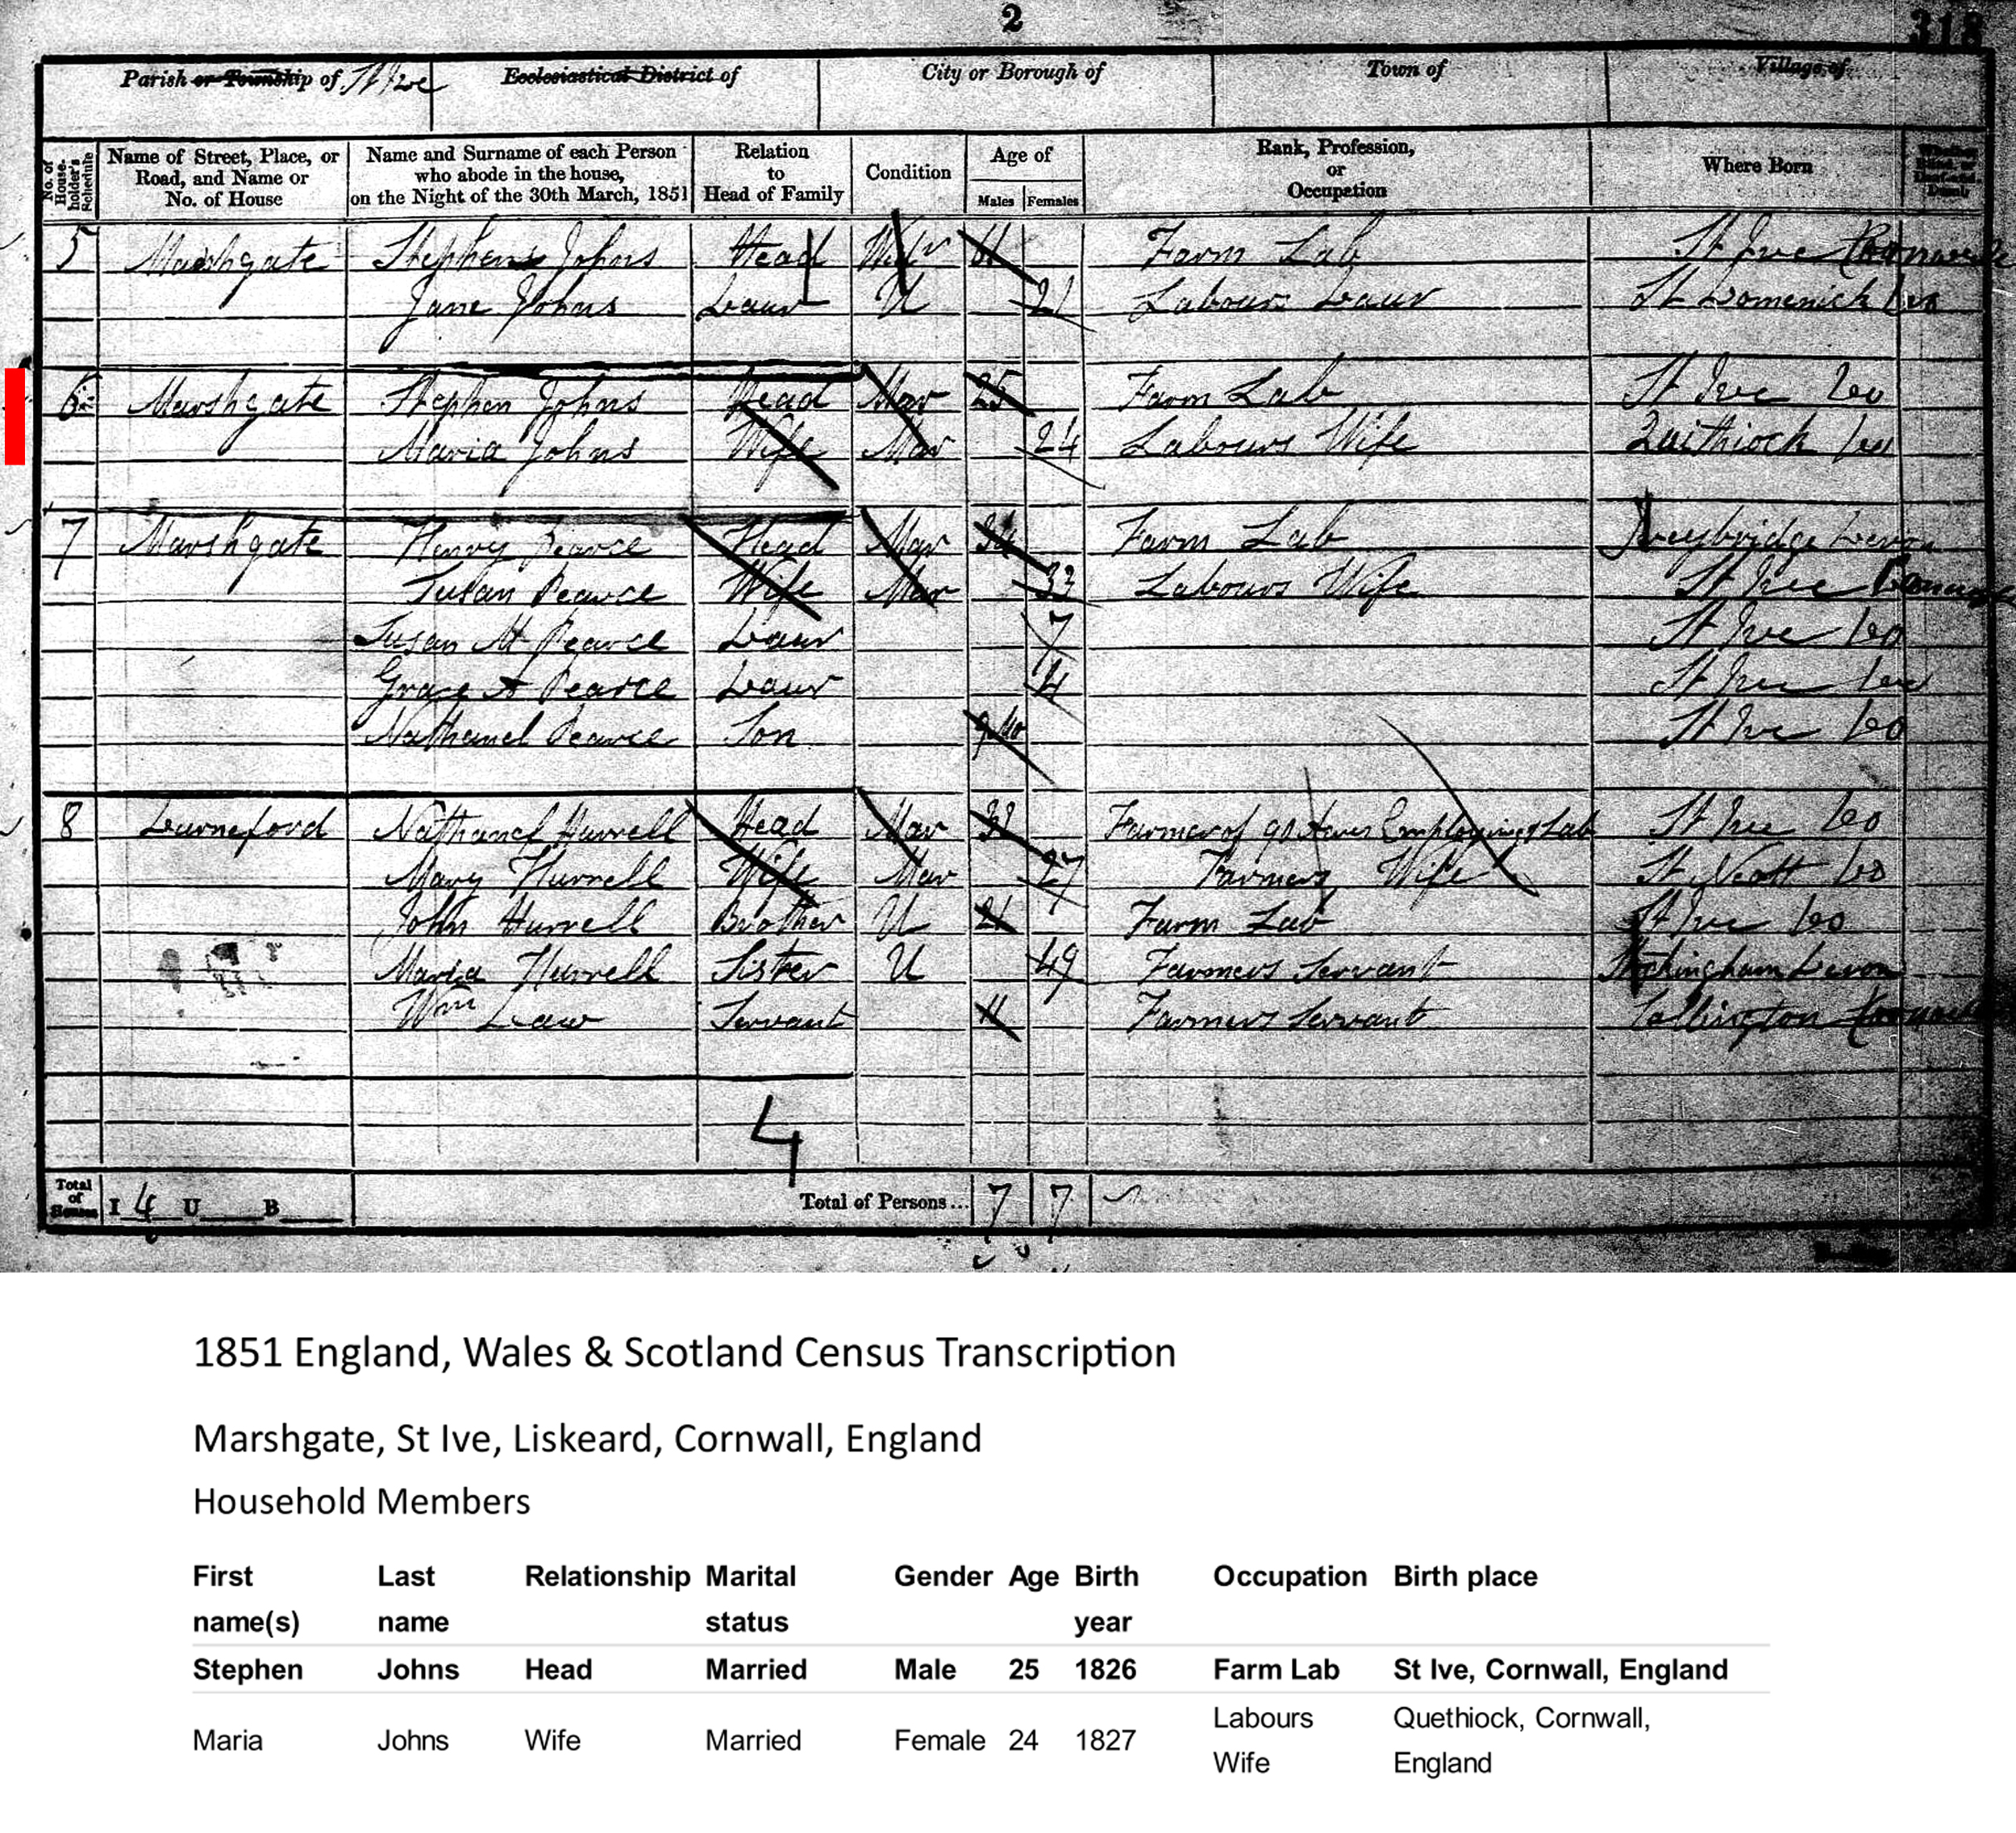 2
318
Parish or Township of St Ive Ecclesiastical District of City or Borough of Town of Village of
No. of House-holder's Schedule
Name of Street, Place, or Road, and Name or No. of House
Name and Surname of each Person who abode in the house, on the Night of the 30th March, 1851
Relation to Head of Family
Condition
Age of
Males Females
Rank, Profession, or Occupation
Where Born
5 Marshgate Stephen Johns Head Widr 61 Farm Lab St Ive Cornwall
Jane Johns Daur U 21 Labours Daur St Domenick Do
6 Marshgate Stephen Johns Head Mar 25 Farm Lab St Ive Do
Maria Johns Wife Mar 24 Labours Wife Quithiock Do
7 Marshgate Henry Pearce Head Mar Farm Lab Devon
Susan Pearce Wife Mar 33 Labours Wife St Ive Cornwall
Susan M Pearce Daur 7 St Ive Do
Grace A Pearce Daur 4 St Ive Do
Nathanel Pearce Son St Ive Do
8 Nathanel Hurrell Head Mar Farmer of 90 Acres Employing Lab St Ive Do
Mary Hurrell Wife Mar 27 Farmers Wife St Neott Do
John Hurrell Brother U 21 Farm Lab St Ive Do
Maria Hurrell Sister U 49 Farmers Servant Devon
Wm Law Servant 11 Farmers Servant Callington Cornwall
4
Total of Houses I 4 U B Total of Persons... 7 7
1851 England, Wales & Scotland Census Transcription
Marshgate, St Ive, Liskeard, Cornwall, England
Household Members
First name(s) Last name Relationship Marital status Gender Age Birth year Occupation Birth place
Stephen Johns Head Married Male 25 1826 Farm Lab St Ive, Cornwall, England
Maria Johns Wife Married Female 24 1827 Labours Wife Quethiock, Cornwall, England